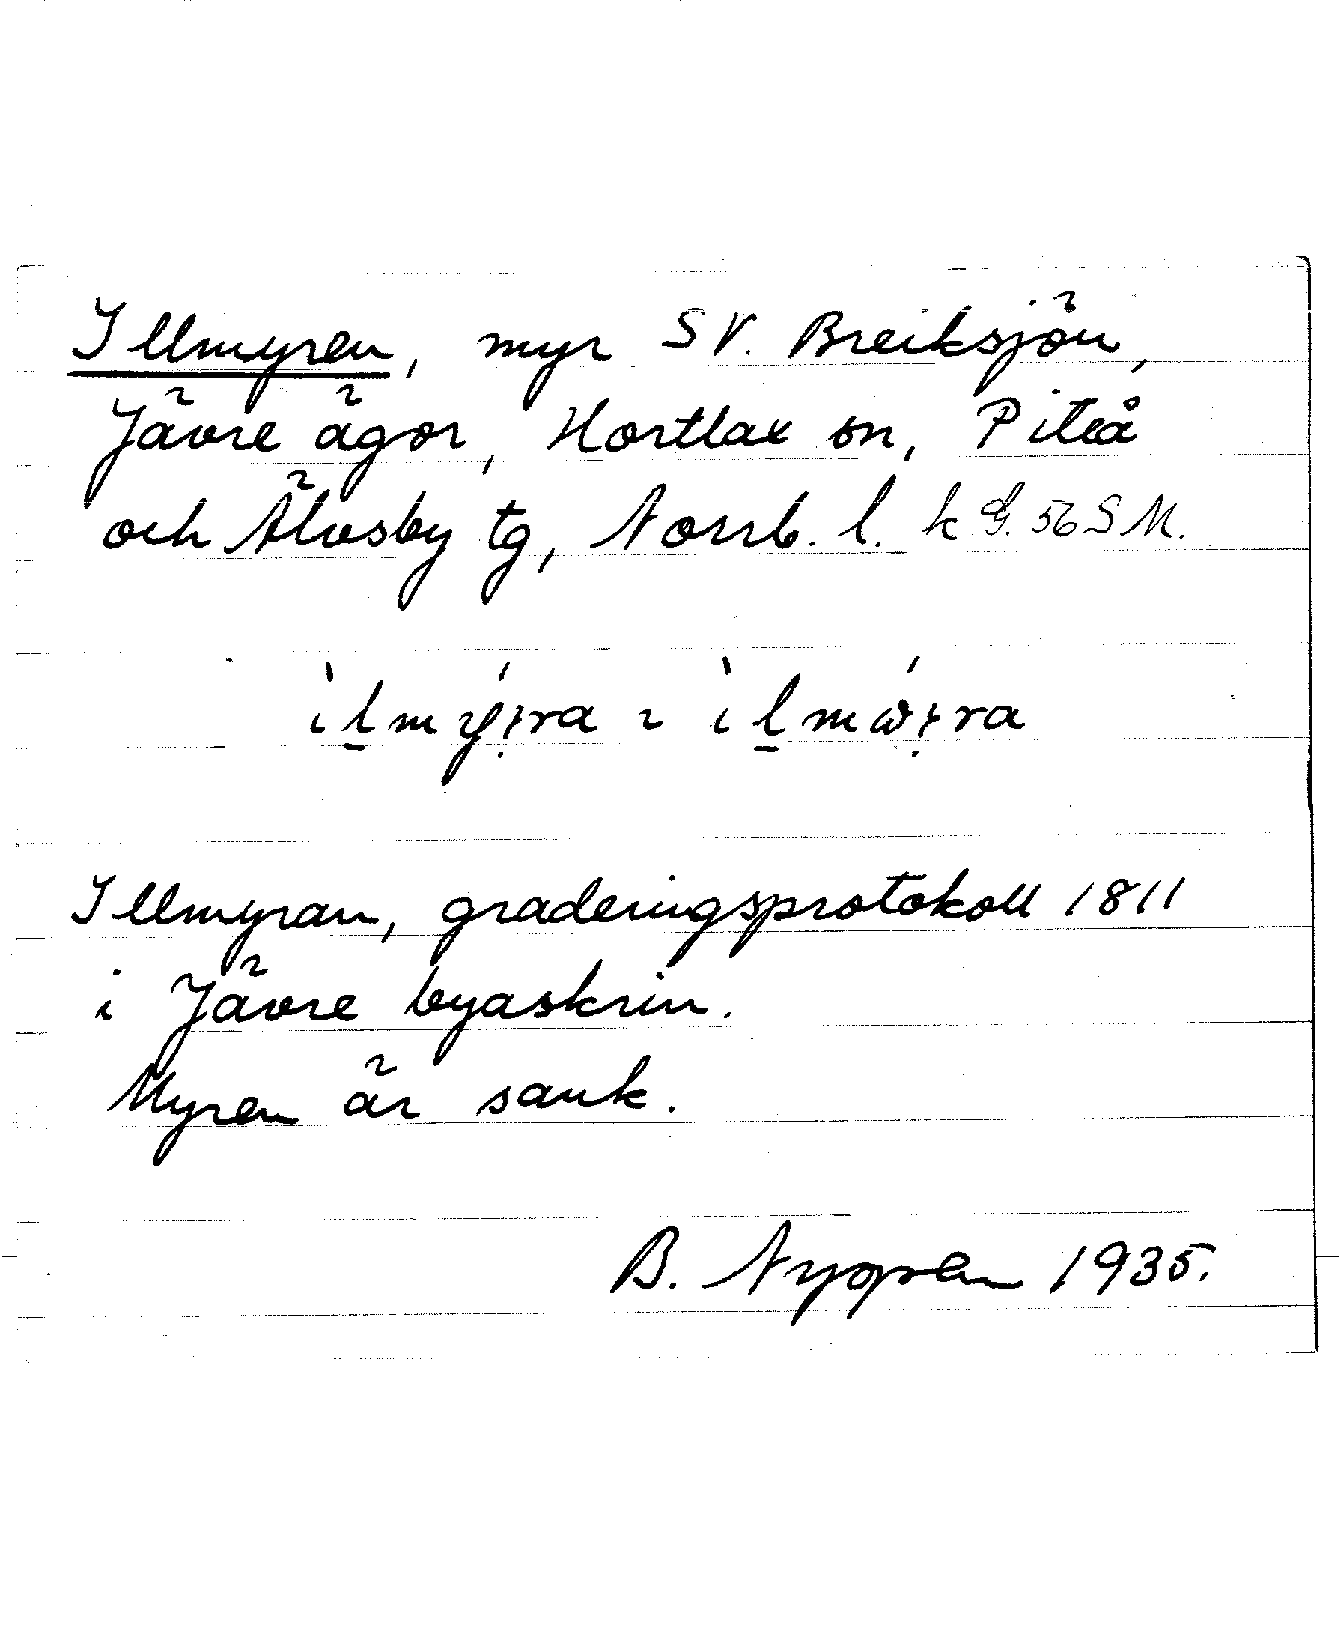 Illmyren, myr SV. Breiksjön,
Jävre ägor, Hortlax sn, Piteå
och Älvsby tg, Norrb. l. k G. 56 S M.
Illmyran, graderingsprotokoll 1811
i Jävre byaskrin.
Myren är sank.
B. Nygren 1935.